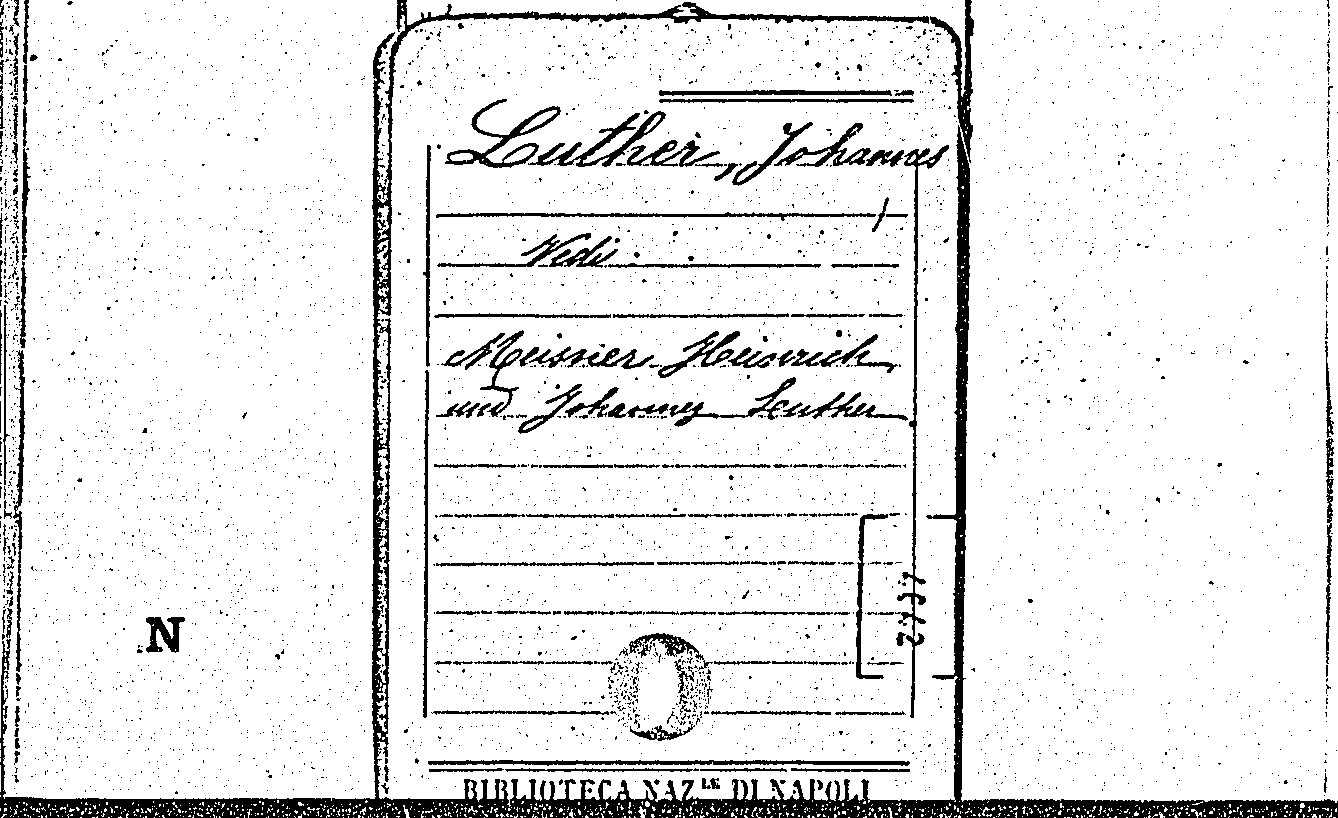 Luther, Johannes
Vedi:
Meisner Heinrich,
und Johannes Luther
2737
N
BIBLIOTECA NAZ.LE DI NAPOLI